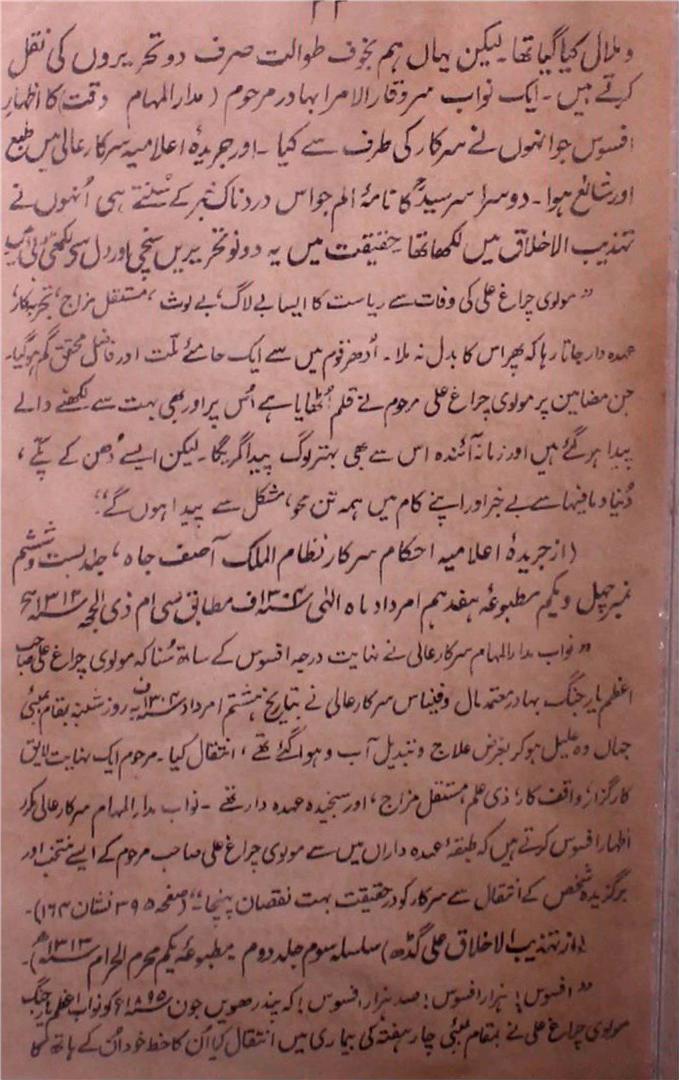 و ملال کیا گیا تھا۔ لیکن یہاں ہم بخوف طوالت صرف دو تحریروں کی نقل
کرتے ہیں۔ ایک نواب سر وقار الامرا بہادر مرحوم (مدار المہام وقت) کا اظہارِ
افسوس جو انہوں نے سرکار کی طرف سے کیا۔ اور جریدۂ اعلامیہ سرکار عالی میں طبع
اور شائع ہوا۔ دوسرا سرسیدؒ کا نامۂ الم جو اس دردناک خبر کے سُنتے ہی اُنھوں نے
تہذیب الاخلاق میں لکھا تھا۔ حقیقت میں یہ دونو تحریریں سچی اور دل سے لکھی ہوئی ہیں
"مولوی چراغ علی کی وفات سے ریاست کا ایسا بے لاگ، بے لوث، مستقل مزاج، تجربہ کار،
عہدہ دار جاتا رہا کہ پھر اس کا بدل نہ ملا۔ اُدھر قوم میں سے ایک حامئے ملّت اور فاضل محقق گم ہو گیا۔
جن مضامین پر مولوی چراغ علی مرحوم نے قلم اُٹھایا ہے اُس پر اور بھی بہت سے لکھنے والے
پیدا ہو گئے ہیں اور زمانہ آئندہ اس سے بھی بہتر لوگ پیدا کریگا۔ لیکن ایسے دُھن کے پکّے،
دُنیا و مافیہا سے بے خبر اور اپنے کام میں ہمہ تن محو، مشکل سے پیدا ہوں گے"
(از جریدۂ اعلامیہ احکام سرکار نظام الملک آصف جاہ، جلد بست و ششم
نمبر چہل و یکم مطبوعۂ ہفدہم امرداد ماہ الٰہی ۱۳۰۴ف مطابق سی ام ذی الحجہ ۱۳۱۲ھ
"نواب مدار المہام سرکار عالی نے نہایت درجہ افسوس کے ساتھ سُنا کہ مولوی چراغ علی صاحب
اعظم یار جنگ بہادر معتمد مال و فینانس سرکار عالی نے بتاریخ ہشتم امرداد ۱۳۰۴ف روز شنبہ بمقام بمبئی
جہاں وہ علیل ہو کر بغرض علاج و تبدیل آب و ہوا گئے تھے، انتقال کیا۔ مرحوم ایک نہایت لایق
کارگزار، واقف کار، ذی علم، مستقل مزاج، اور سنجیدہ عہدہ دار تھے۔ نواب مدار المہام سرکار عالی مکرر
اظہار افسوس کرتے ہیں کہ طبقۂ عہدہ داراں میں سے مولوی چراغ علی صاحب مرحوم کے ایسے منتخب اور
برگزیدہ شخص کے انتقال سے سرکار کو درحقیقت بہت نقصان پہنچا۔" (صفحہ ۳۹۵ نشان ۱۶۳)۔
(از تہذیب الاخلاق علی گڈھ) سلسلہ سوم جلد دوم مطبوعۂ یکم محرم الحرام ۱۳۱۳ھ)۔
"افسوس! ہزار افسوس! صد ہزار افسوس! کہ پندرھویں جون ۱۸۹۵ء کو نواب اعظم یار جنگ
مولوی چراغ علی نے بمقام بمبئی چار ہفتہ کی بیماری میں انتقال کیا اُن کا خط خود اُن کے ہاتھ کا